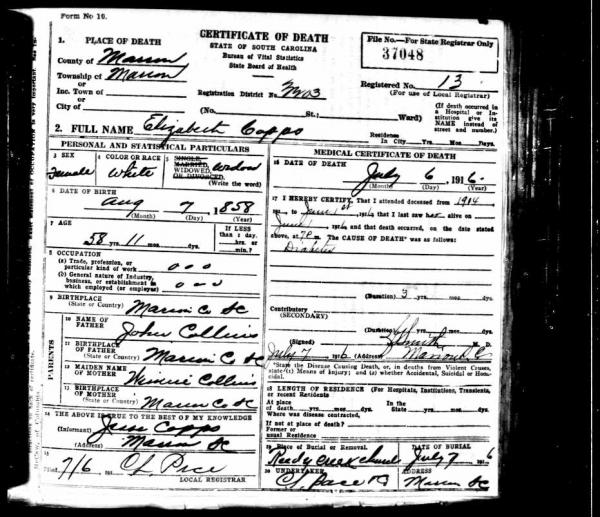 Form No 10.
CERTIFICATE OF DEATH
STATE OF SOUTH CAROLINA
Bureau of Vital Statistics
State Board of Health
File No.—For State Registrar Only
37048
1. PLACE OF DEATH
County of Marion
Township of Marion
or
Inc. Town of
or
City of
Registration District No.
Registered No. 13
(For use of Local Registrar)
(No. St.; Ward)
(If death occurred in a Hospital or Institution give its NAME instead of street and number.)
2. FULL NAME Elizabeth Capps
Residence
In City Yrs. Mos. Days
PERSONAL AND STATISTICAL PARTICULARS
3 SEX
Female
4 COLOR OR RACE
White
5 SINGLE, MARRIED, WIDOWED, OR DIVORCED. Widow
(Write the word)
6 DATE OF BIRTH
Aug 7 1858
(Month) (Day) (Year)
7 AGE
58 yrs. 11 mos. days
IF LESS than 1 day, hrs. or min.?
8 OCCUPATION
(a) Trade, profession, or particular kind of work
(b) General nature of Industry, business, or establishment in which employed (or employer)
9 BIRTHPLACE
(State or Country) Marion Co SC
PARENTS
10 NAME OF FATHER John Collins
11 BIRTHPLACE OF FATHER
(State or Country) Marion Co SC
12 MAIDEN NAME OF MOTHER Winnie Collins
13 BIRTHPLACE OF MOTHER
(State or Country) Marion Co SC
14 THE ABOVE IS TRUE TO THE BEST OF MY KNOWLEDGE
(Informant) Jesse Capps
(Address) Marion SC
15
Filed 7/6 191 C L Pace
LOCAL REGISTRAR
MEDICAL CERTIFICATE OF DEATH
16 DATE OF DEATH
July 6 1916
(Month) (Day) (Year)
17 I HEREBY CERTIFY, That I attended deceased from 1914
to June 1st 1916 that I last saw her alive on
June 1916 and that death occurred, on the date stated
above, at 7 P m. The CAUSE OF DEATH* was as follows:
Diabetes
(Duration) 3 yrs. mos. ds.
Contributory
(SECONDARY)
(Duration) yrs. mos. ds.
(Signed) Smith M. D.
July 7 1916 (Address) Marion S C
*State the Disease Causing Death, or, in deaths from Violent Causes, state (1) Means of Injury; and (2) whether Accidental, Suicidal or Homicidal.
18 LENGTH OF RESIDENCE (For Hospitals, Institutions, Transients, or recent Residents
At place of death yrs. mos. ds. In the State yrs. mos. ds.
Where was disease contracted,
If not at place of death?
Former or
usual Residence
19 Place of Burial or Removal.
Reedy Creek Church
DATE OF BURIAL
July 7 1916
20 UNDERTAKER
C L Pace
ADDRESS
Marion SC